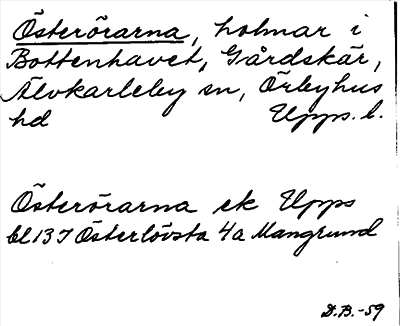 Österörarna, holmar i
Bottenhavet, Gårdskär,
Älvkarleby sn, Örbyhus
hd Upps. l.
Österörarna ek Upps
bl 137 Österlövsta 4a Mangrund
D.B.-59